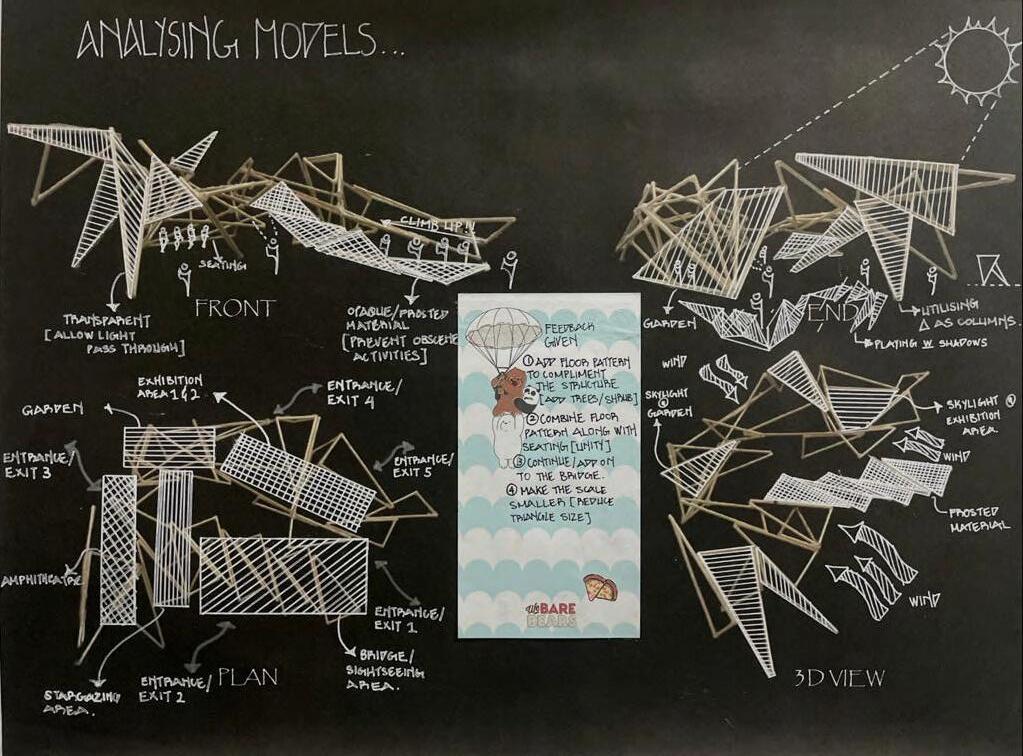 ANALYSING MODELS...
CLIMB UP!!
SEATING
FRONT
TRANSPARENT
[ALLOW LIGHT
PASS THROUGH]
OPAQUE/FROSTED
MATERIAL
[PREVENT OBSCENE
ACTIVITIES]
END
GARDEN
UTILISING
Δ AS COLUMNS.
PLAYING W SHADOWS
FEEDBACK
GIVEN
① ADD FLOOR PATTERN
TO COMPLIMENT
THE STRUCTURE
[ADD TREES/SHRUB]
② COMBINE FLOOR
PATTERN ALONG WITH
SEATING [UNITY]
③ CONTINUE/ADD ON
TO THE BRIDGE.
④ MAKE THE SCALE
SMALLER [REDUCE
TRIANGLE SIZE]
We BARE
BEARS
EXHIBITION
AREA 1&2
ENTRANCE/
EXIT 4
GARDEN
ENTRANCE/
EXIT 3
ENTRANCE/
EXIT 5
AMPHITHEATRE
ENTRANCE/
EXIT 1
BRIDGE/
SIGHTSEEING
AREA.
ENTRANCE/
EXIT 2
STARGAZING
AREA.
PLAN
WIND
SKYLIGHT @
GARDEN
SKYLIGHT @
EXHIBITION
AREA.
WIND
FROSTED
MATERIAL
WIND
3D VIEW